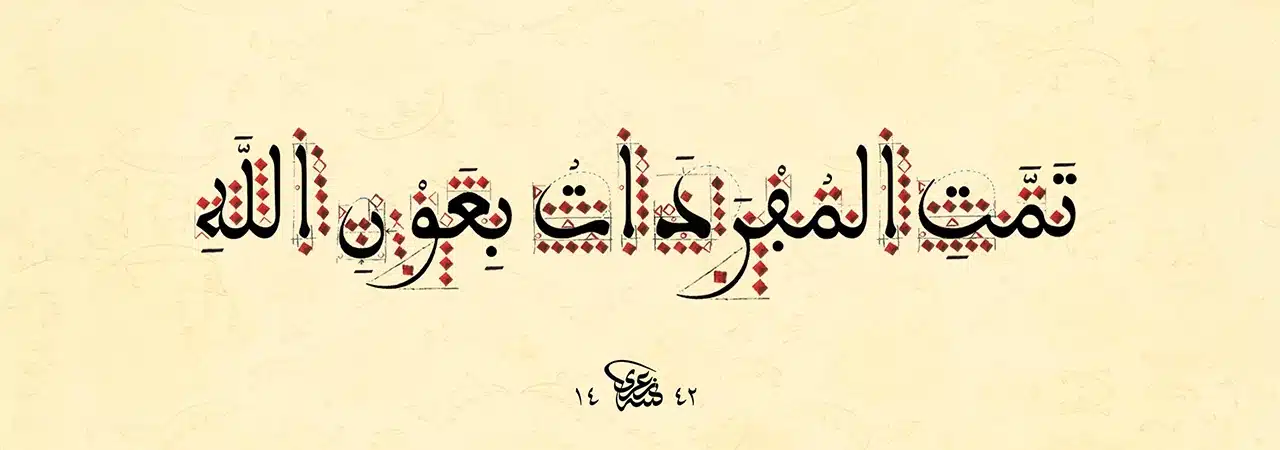 تَمَّتِ المُفْرَدَاتُ بِعَوْنِ اللَّهِ
١٤ ٤٢